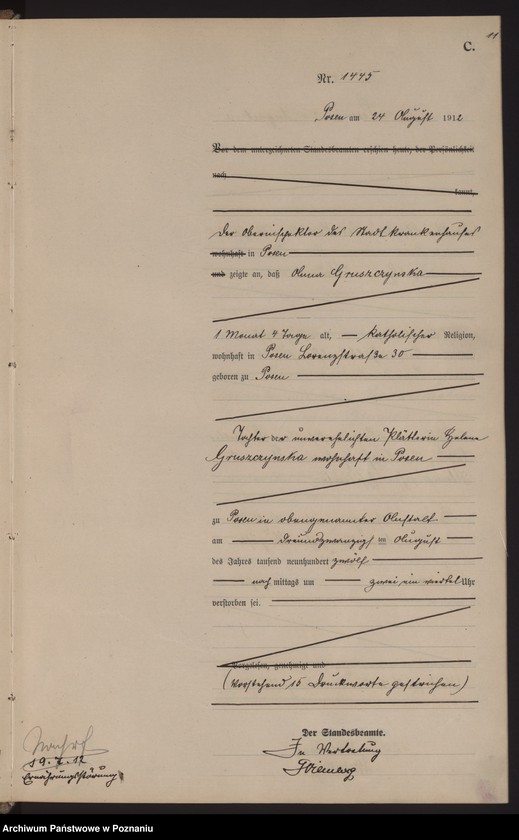 C. 11
Nr. 1445
Posen am 24 August 1912
Vor dem unterzeichneten Standesbeamten erschien heute, der Persönlichkeit
nach
kannt,
der Oberinspektor des Stadtkrankenhauses
wohnhaft in Posen
und zeigte an, daß Anna Gruszczynska
1 Monat 4 Tage alt, katholischer Religion,
wohnhaft in Posen Lorenzstraße 30
geboren zu Posen
Tochter der unverehelichten Plätterin Helene
Gruszczynska wohnhaft in Posen
zu Posen in obengenannter Anstalt
am dreiundzwanzigst en August
des Jahres tausend neunhundert zwölf
nach mittags um zwei ein viertel Uhr
verstorben sei.
Vorgelesen, genehmigt und
(Vorstehend 15 Druckworte gestrichen)
Der Standesbeamte.
In Vertretung
19.7.12
Ernährungsstörung
Archiwum Państwowe w Poznaniu